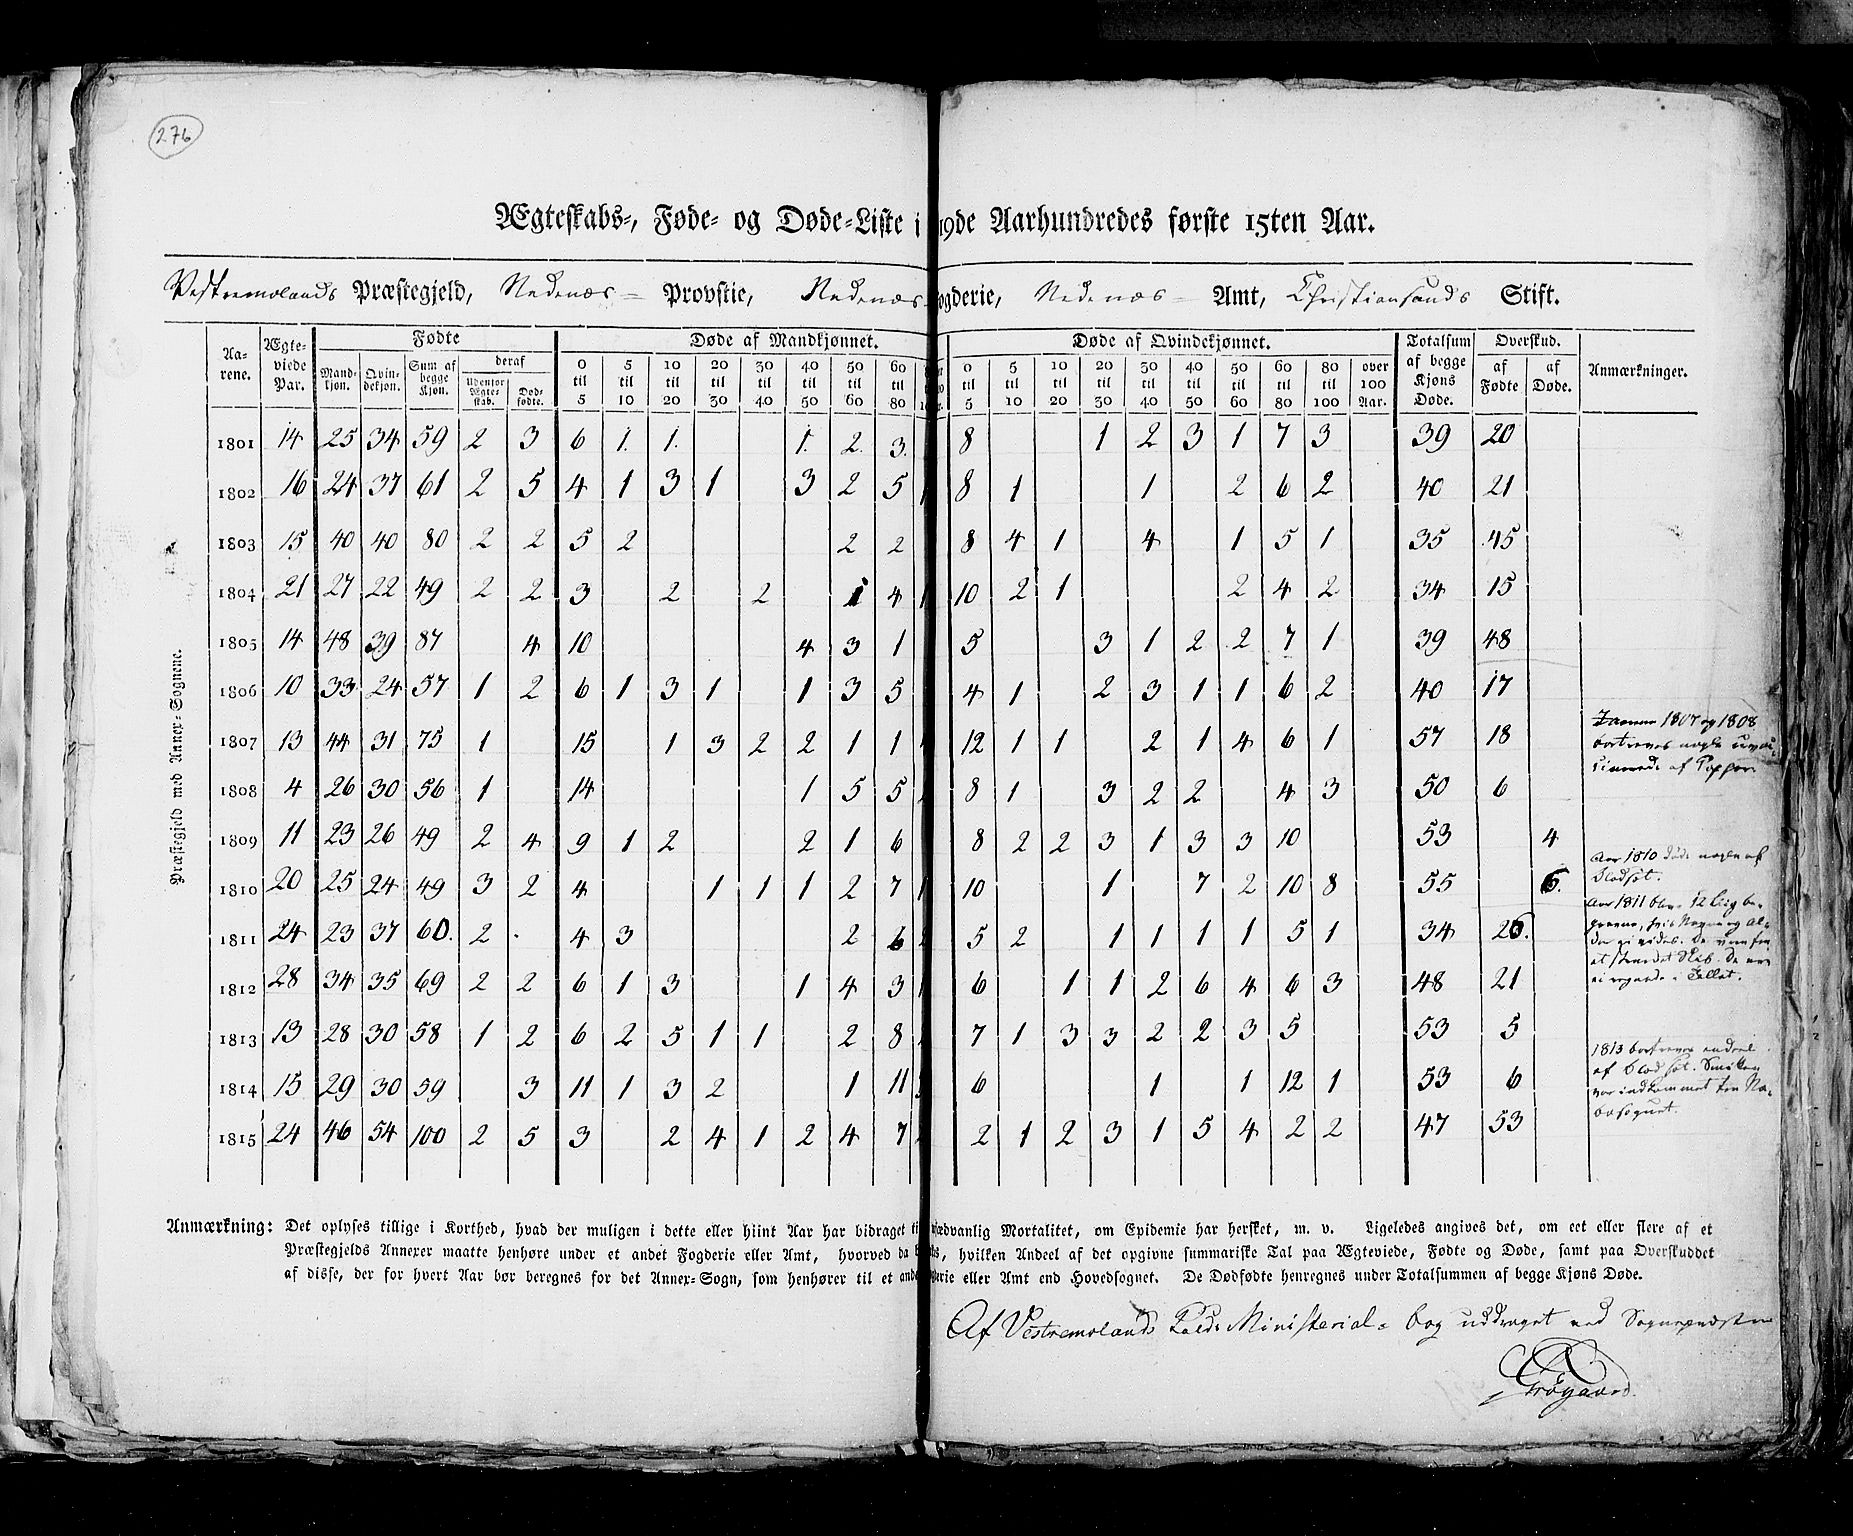 276
Ægteskabs-, Føde- og Døde-Liste i 19de Aarhundredes første 15ten Aar.
Vestremolands Præstegjeld, Nedenæs Provstie, Nedenæs ogderie, Nedenæs Amt, Christiansands Stift.
Præstegjeld med Annex-Sognene.
Aa-rene. Ægte-viede Par. Fødte Mand-kjøn. Qvin-dekjøn. Sum af begge Kjøn. deraf Udenfor Ægte-skab. Død-fødte. Døde af Mandkjønnet. 0 til 5 5 til 10 10 til 20 20 til 30 30 til 40 40 til 50 50 til 60 60 til 80 Døde af Qvindekjønnet. 0 til 5 5 til 10 10 til 20 20 til 30 30 til 40 40 til 50 50 til 60 60 til 80 80 til 100 over 100 Aar. Totalsum af begge Kjøns Døde. Overskud. af Fødte af Døde. Anmærkninger.
1801 14 25 34 59 2 3 6 1. 1. 1. 2. 3. 8 1 2 3 1 7 3 39 20
1802 16 24 37 61 2 5 4 1 3 1 3 2 5 1 8 1 1 2 6 2 40 21
1803 15 40 40 80 2 2 5 2 2 2 8 4 1 4 1 5 1 35 45
1804 21 27 22 49 2 2 3 2 2 1 4 1 10 2 1 2 4 2 34 15
1805 14 48 39 87 4 10 4 3 1 5 3 1 2 2 7 1 39 48
1806 10 33 24 57 1 2 6 1 3 1 1 3 5 4 1 2 3 1 1 6 2 40 17
1807 13 44 31 75 1 15 1 3 2 2 1 1 12 1 1 2 1 4 6 1 57 18
1807 og 1808
bortreves nogle
af
1808 4 26 30 56 1 14 1 5 5 8 1 3 2 2 4 3 50 6
1809 11 23 26 49 2 4 9 1 2 2 1 6 8 2 2 3 1 3 3 10 53 4
Aar 1810 døde nogle af
Blodsot.
1810 20 25 24 49 3 2 4 1 1 1 2 7 1 10 1 7 2 10 8 55 6.
Aar 1811 blev 12 Liig be-
1811 24 23 37 60. 2 4 3 2 6 5 2 1 1 1 1 5 1 34 26.
1812 28 34 35 69 2 2 6 1 3 1 4 3 1 6 1 1 2 6 4 6 3 48 21
1813 13 28 30 58 1 2 6 2 5 1 1 2 8 7 1 3 3 2 2 3 5 53 5
1813 bortreves endeel
af Blodsot. Smitten
var indkommet fra Na-
bosognet.
1814 15 29 30 59 3 11 1 3 2 1 11 6 1 1 12 1 53 6
1815 24 46 54 100 2 5 3 2 4 1 2 4 7 2 1 2 3 1 5 4 2 2 47 53
Anmærkning: Det oplyses tillige i Korthed, hvad der muligen i dette eller hiint Aar har bidraget til sædvanlig Mortalitet, om Epidemie har hersket, m. v. Ligeledes angives det, om eet eller flere af et
Præstegjelds Annexer maatte henhøre under et andet Fogderie eller Amt, hvorved da , hvilken Andeel af det opgivne summariske Tal paa Ægteviede, Fødte og Døde, samt paa Overskuddet
af disse, der for hvert Aar bør beregnes for det Annex-Sogn, som henhører til et gderie eller Amt end Hovedsognet. De Dødfødte henregnes under Totalsummen af begge Kjøns Døde.
Af Vestremolands Kalds Ministerial-bog uddraget ved Sognepræsten
Krøgaard.